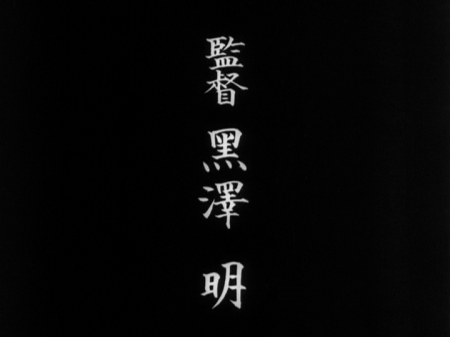 監督 黑澤 明